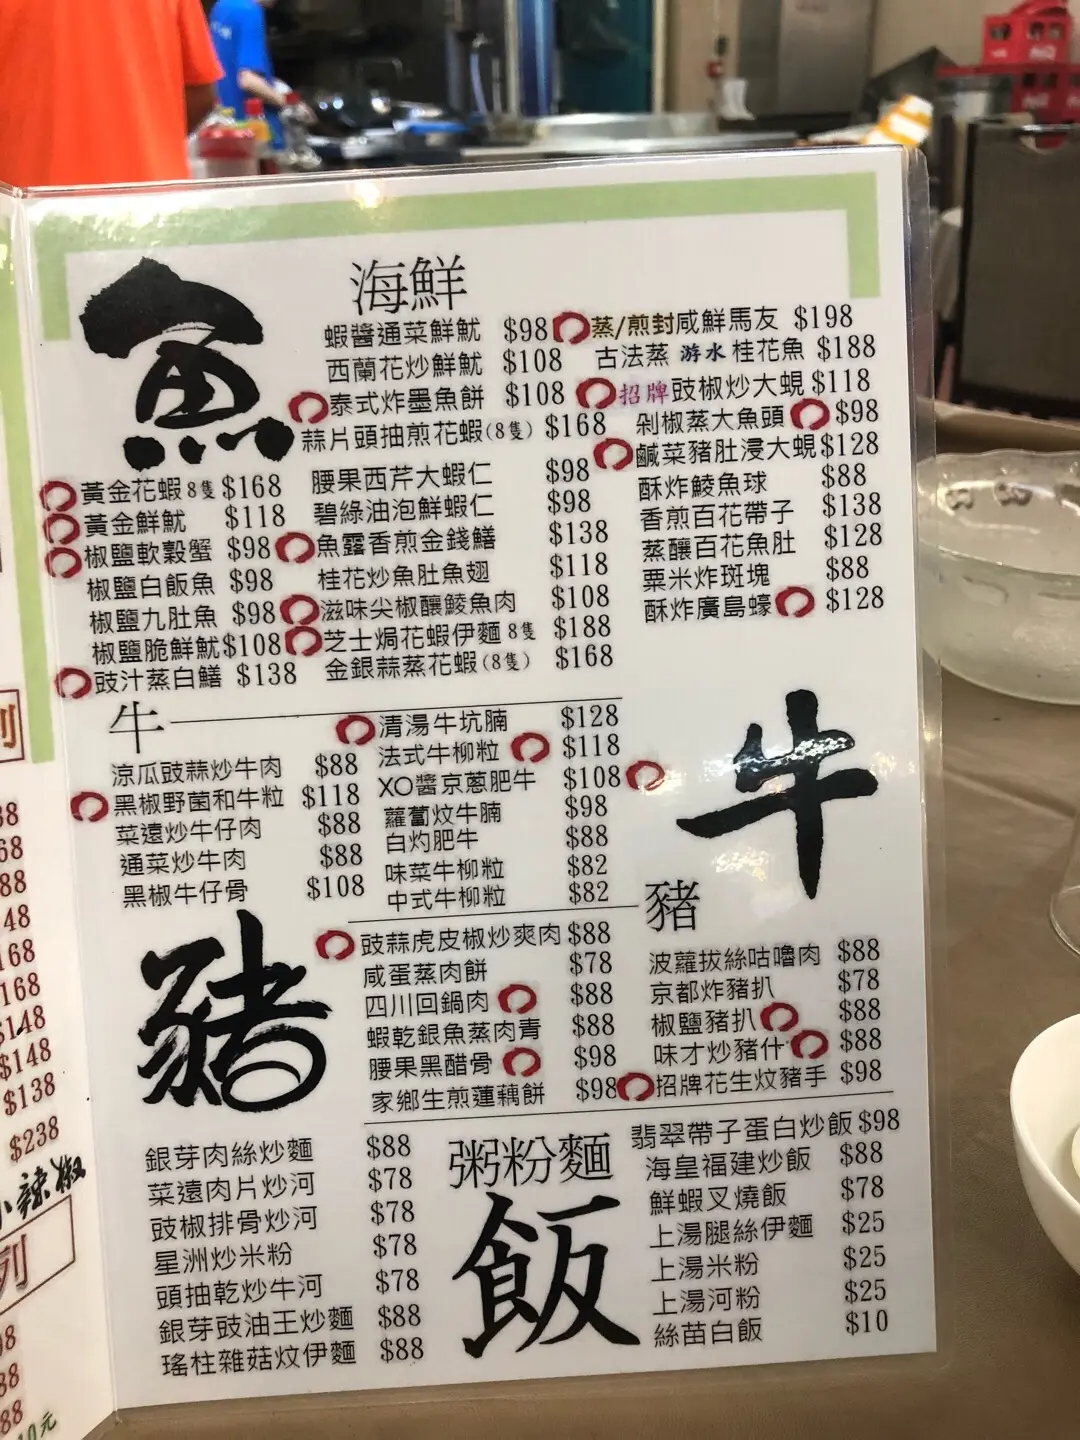 魚
海鮮
蝦醬通菜鮮魷 $98
西蘭花炒鮮魷 $108
泰式炸墨魚餅 $108
蒜片頭抽煎花蝦(8隻) $168
蒸/煎封咸鮮馬友 $198
古法蒸 游水 桂花魚 $188
招牌豉椒炒大蜆 $118
剁椒蒸大魚頭 $98
鹹菜豬肚浸大蜆 $128
酥炸鯪魚球 $88
香煎百花帶子 $138
蒸釀百花魚肚 $128
粟米炸斑塊 $88
酥炸廣島蠔 $128
黃金花蝦8隻 $168
黃金鮮魷 $118
椒鹽軟殼蟹 $98
椒鹽白飯魚 $98
椒鹽九肚魚 $98
椒鹽脆鮮魷 $108
豉汁蒸白鱔 $138
腰果西芹大蝦仁 $98
碧綠油泡鮮蝦仁 $98
魚露香煎金錢鱔 $138
桂花炒魚肚魚翅 $118
滋味尖椒釀鯪魚肉 $108
芝士焗花蝦伊麵 8隻 $188
金銀蒜蒸花蝦(8隻) $168
牛
涼瓜豉蒜炒牛肉 $88
黑椒野菌和牛粒 $118
菜遠炒牛仔肉 $88
通菜炒牛肉 $88
黑椒牛仔骨 $108
清湯牛坑腩 $128
法式牛柳粒 $118
XO醬京蔥肥牛 $108
蘿蔔炆牛腩 $98
白灼肥牛 $88
味菜牛柳粒 $82
中式牛柳粒 $82
牛
豬
豬
豉蒜虎皮椒炒爽肉 $88
咸蛋蒸肉餅 $78
四川回鍋肉 $88
蝦乾銀魚蒸肉青 $88
腰果黑醋骨 $98
家鄉生煎蓮藕餅 $98
波蘿拔絲咕嚕肉 $88
京都炸豬扒 $78
椒鹽豬扒 $88
味才炒豬什 $88
招牌花生炆豬手 $98
粥粉麵
飯
銀芽肉絲炒麵 $88
菜遠肉片炒河 $78
豉椒排骨炒河 $78
星洲炒米粉 $78
頭抽乾炒牛河 $78
銀芽豉油王炒麵 $88
瑤柱雜菇炆伊麵 $88
翡翠帶子蛋白炒飯 $98
海皇福建炒飯 $88
鮮蝦叉燒飯 $78
上湯腿絲伊麵 $25
上湯米粉 $25
上湯河粉 $25
絲苗白飯 $10
列
$148
$148
$138
$238
小辣椒
列
10元